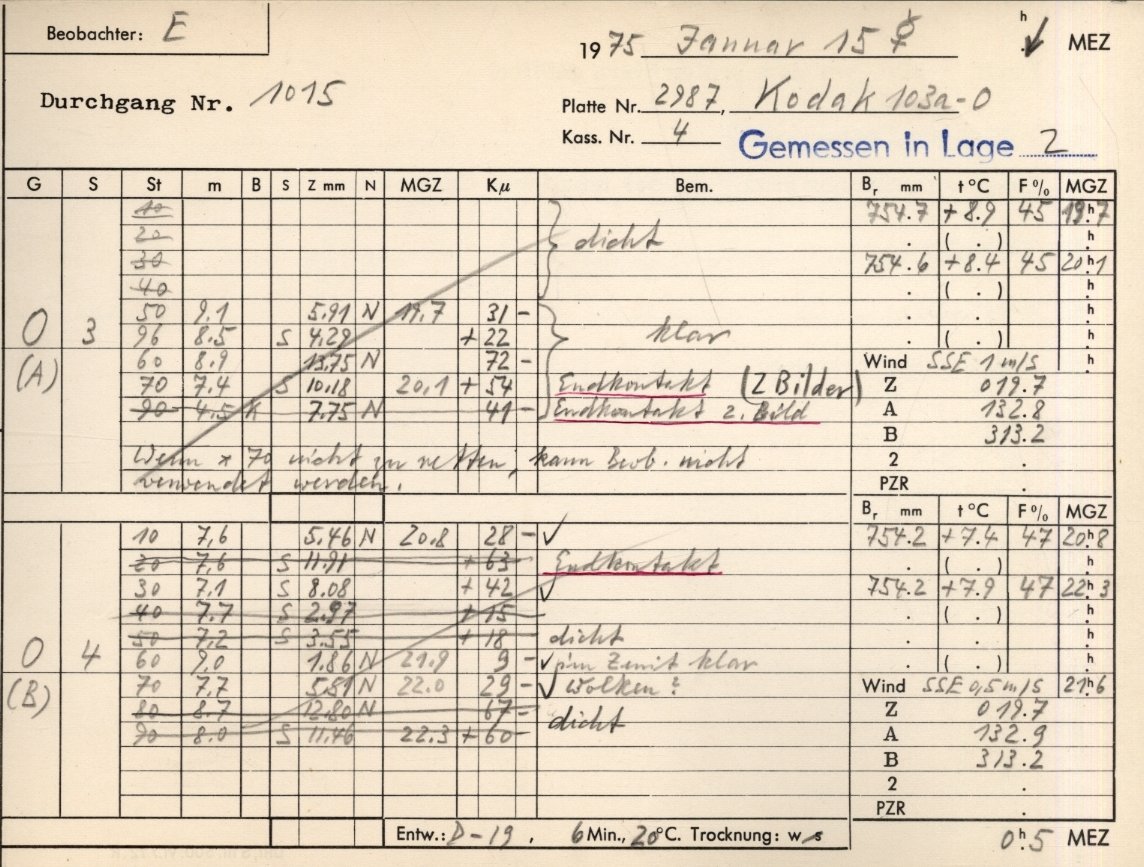 Beobachter: E
1975 Januar 15 ♀ h MEZ
Durchgang Nr. 1015
Platte Nr. 2987, Kodak 103a-O
Kass. Nr. 4 Gemessen in Lage 2
G S St m B S Z mm N MGZ Kμ Bem. Br mm t °C F % MGZ
10 754.7 +8.9 45 19h.7
20 dicht . ( . ) h.
30 754.6 +8.4 45 20h.1
40 . ( . ) h.
50 9.1 5.91 N 19.7 31 - . h.
0 3 96 8.5 S 4.29 + 22 klar . ( . ) h.
(A) 60 8.9 13.75 N 72 - Wind SSE 1 m/s h.
70 7.4 S 10.18 20.1 + 54 Endkontakt (2 Bilder) Z 019.7
90 4.5 K 7.75 N 41 - Endkontakt 2. Bild A 132.8
B 313.2
Wenn * 70 nicht zu retten, kann Beob. nicht 2 .
verwendet werden. PZR .
Br mm t °C F % MGZ
10 7,6 5.46 N 20.8 28 - ✓ 754.2 +7.4 47 20h.8
20 7,6 S 11.91 + 63 Endkontakt . ( . ) h.
30 7,1 S 8.08 + 42 ✓ 754.2 +7.9 47 22h.3
40 7.7 S 2.97 + 15 . ( . ) h.
50 7,2 S 3.55 + 18 dicht . h.
0 4 60 9,0 1.86 N 21.9 9 - ✓ im Zenit klar . ( . ) h.
(B) 70 7,7 5.51 N 22.0 29 - ✓ Wolken? Wind SSE 0,5 m/s 21h.6
80 8.7 12.80 N 67 - Z 019.7
90 8.0 S 11.46 22.3 + 60 dicht A 132.9
B 313.2
2 .
PZR .
Entw.: D-19, 6 Min., 20°C. Trocknung: w s 0h.5 MEZ